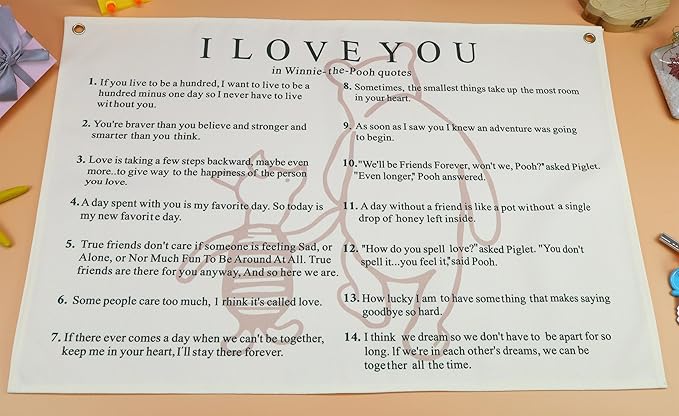 I LOVE YOU
in Winnie-the-Pooh quotes
1. If you live to be a hundred, I want to live to be a
hundred minus one day so I never have to live
without you.
2. You're braver than you believe and stronger and
smarter than you think.
3. Love is taking a few steps backward, maybe even
more..to give way to the happiness of the person
you love.
4.A day spent with you is my favorite day. So today is
my new favorite day.
5. True friends don't care if someone is feeling Sad, or
Alone, or Nor Much Fun To Be Around At All. True
friends are there for you anyway, And so here we are.
6. Some people care too much, I rhink it's called love.
7. If there ever comes a day when we can't be together,
keep me in your heart, I'll stay there forever.
8. Sometimes, the smallest things take up the most room
in your heart.
9. As soon as I saw you I knew an adventure was going
to begin.
10."We'll be Friends Forever, won't we, Pooh?" asked Piglet.
"Even longer," Pooh answered.
11. A day without a friend is like a pot without a single
drop of honey left inside.
12. "How do you spell love?" asked Piglet. "You don't
spell it...you feel it," said Pooh.
13. How lucky I am to have something that makes saying
goodbye so hard.
14. I think we dream so we don't have to be apart for so
long. If we're in each other's dreams, we can be
together all the time.